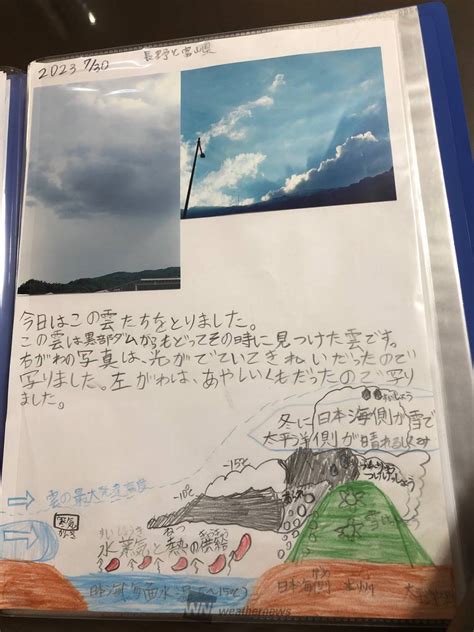 2023 7/30
長野と富山県
今日はこの雲たちをとりました。
この雲は黒部ダムからもどってその時に見つけた雲です。
右がわの写真は、光がでていてきれいだったので
写りました。左がわは、あやしいくもだったので写り
ました。
冬に日本海側が雪で
太平洋側が晴れるしくす
-15℃
-10℃
雲の最大発達高度
水蒸気と熱の供給
日本海側
weathernews